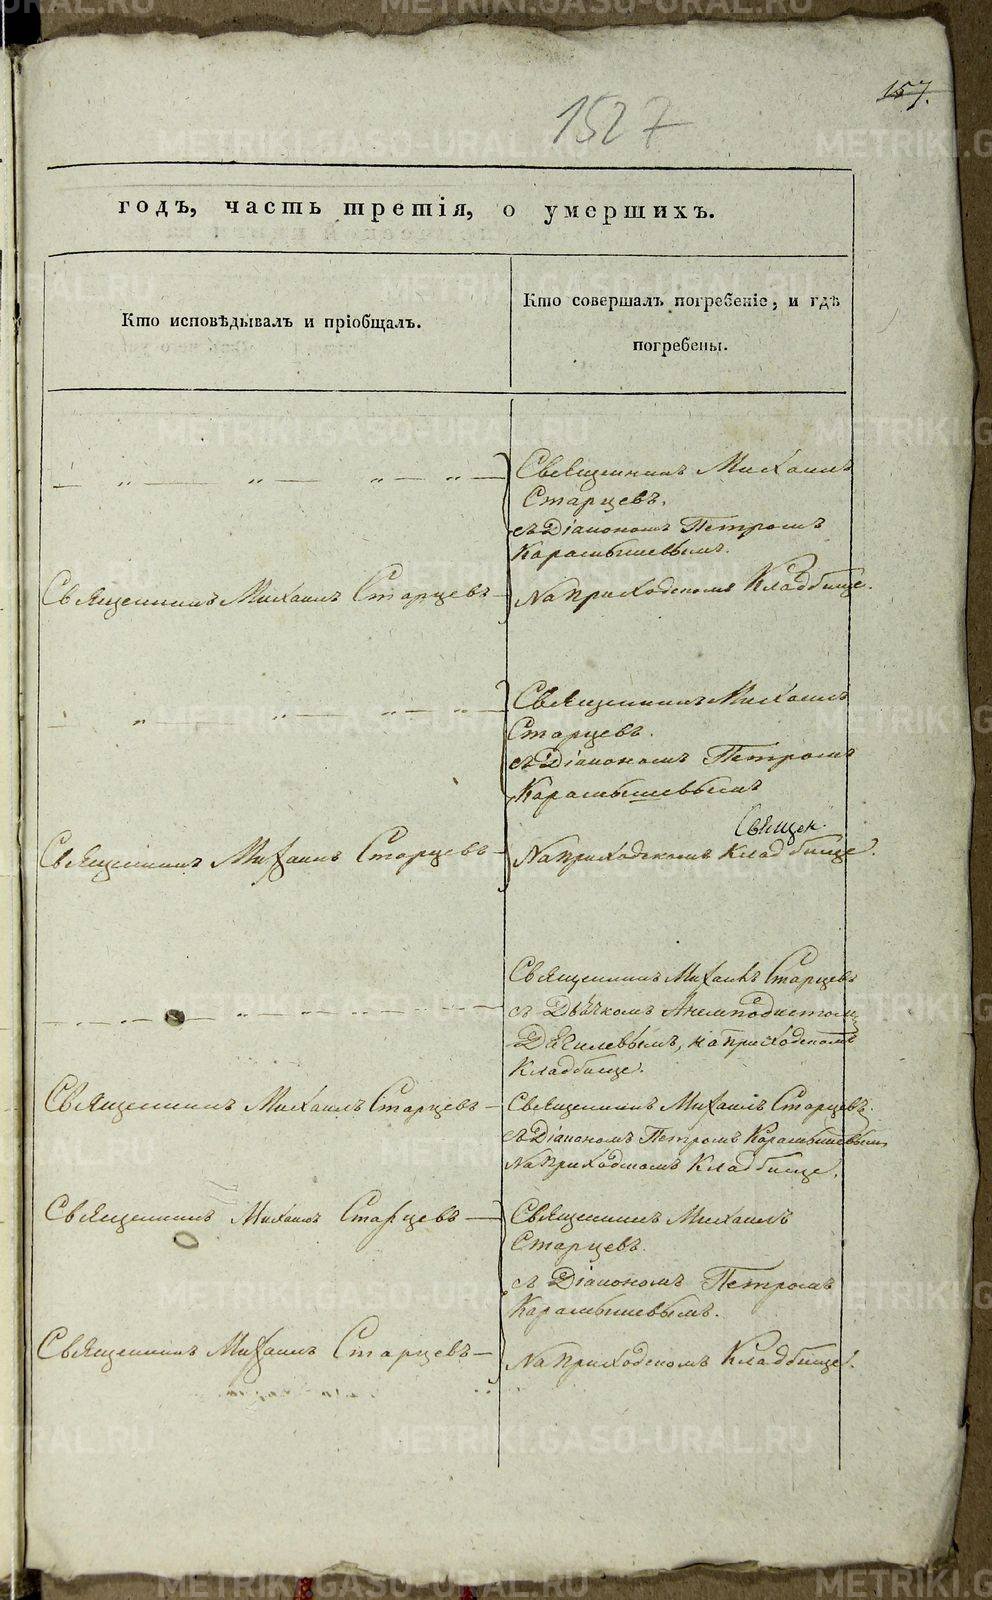 157.
1527
годъ, часть третія, о умершихъ.
Кто исповѣдывалъ и пріобщалъ.
Кто совершалъ погребеніе, и гдѣ
погребены.
Священникъ Михаилъ
Старцевъ.
съ Діакономъ Петромъ
Карамышевымъ.
Священникъ Михаилъ Старцевъ
На приходскомъ Кладбище.
Священникъ Михаилъ
Старцевъ.
съ Діакономъ Петромъ
Карамышевымъ
Священ.
Священникъ Михаилъ Старцевъ
На приходскомъ Кладбище.
Священникъ Михаилъ Старцевъ
съ Дьячкомъ Анемподистомъ
на приходскомъ
Кладбище.
Священникъ Михаилъ Старцевъ
Священникъ Михаилъ Старцевъ.
съ Діакономъ Петромъ Карамышевымъ
На приходскомъ Кладбище.
Священникъ Михаилъ Старцевъ
Священникъ Михаилъ
Старцевъ.
съ Діакономъ Петромъ
Карамышевымъ.
Священникъ Михаилъ Старцевъ
На приходскомъ Кладбище.
METRIKI.GASO-URAL.RU